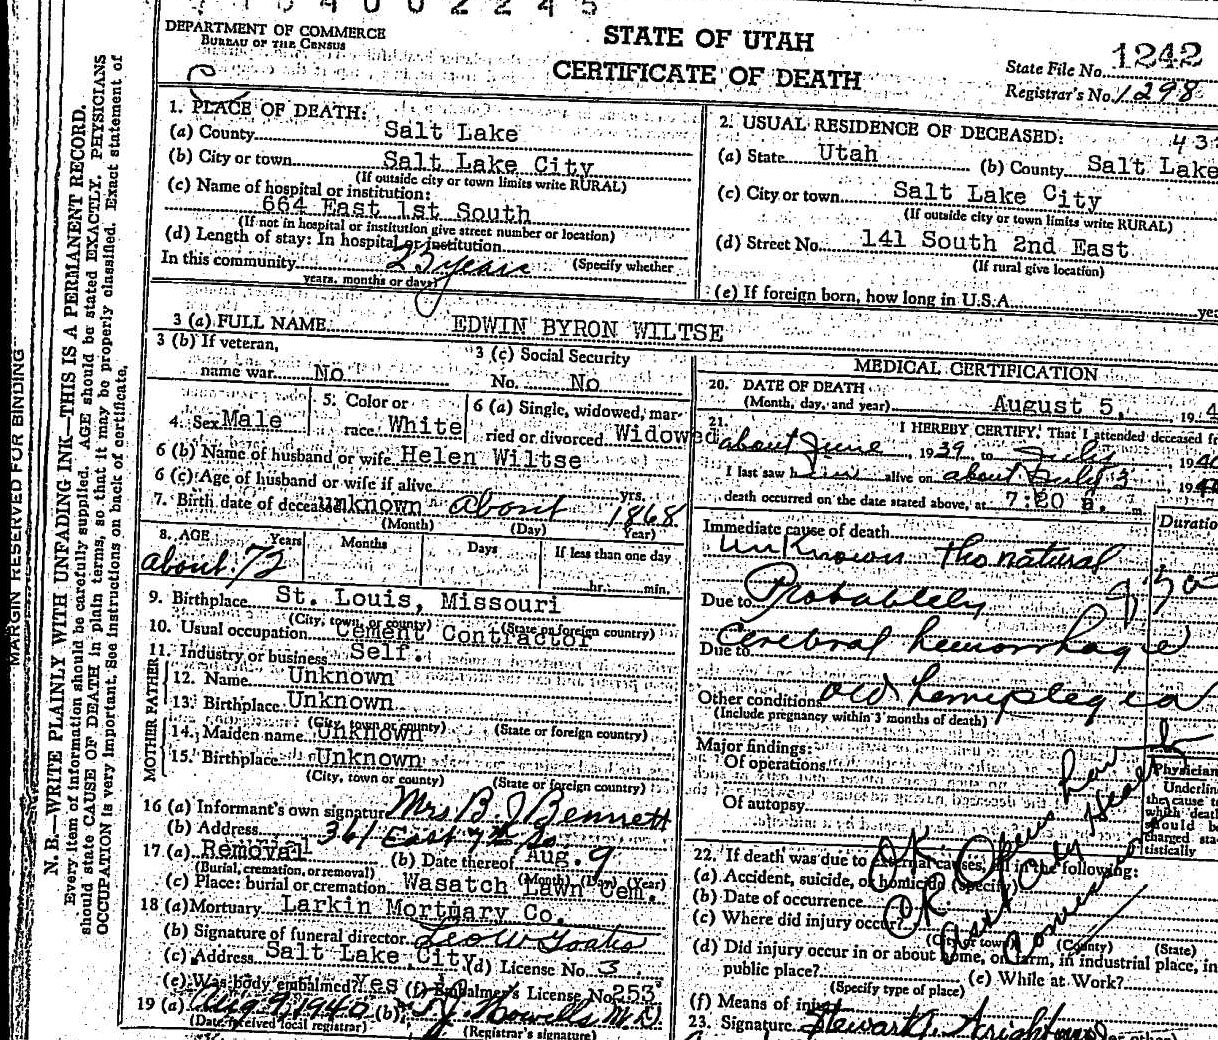 DEPARTMENT OF COMMERCE
BUREAU OF THE CENSUS
STATE OF UTAH
CERTIFICATE OF DEATH
State File No. 1242
Registrar's No. 1298
MARGIN RESERVED FOR BINDING
N. B.—WRITE PLAINLY WITH UNFADING INK—THIS IS A PERMANENT RECORD.
Every item of information should be carefully supplied. AGE should be stated EXACTLY. PHYSICIANS
should state CAUSE OF DEATH in plain terms, so that it may be properly classified. Exact statement of
OCCUPATION is very important. See instructions on back of certificate.
1. PLACE OF DEATH:
(a) County Salt Lake
(b) City or town Salt Lake City
(If outside city or town limits write RURAL)
(c) Name of hospital or institution:
664 East 1st South
(If not in hospital or institution give street number or location)
(d) Length of stay: In hospital or institution
In this community 25 years (Specify whether
years, months or days)
2. USUAL RESIDENCE OF DECEASED:
(a) State Utah (b) County Salt Lake
(c) City or town Salt Lake City
(If outside city or town limits write RURAL)
(d) Street No. 141 South 2nd East
(If rural give location)
(e) If foreign born, how long in U.S.A.
3 (a) FULL NAME EDWIN BYRON WILTSE
3 (b) If veteran,
name war No
3 (c) Social Security
No. No
4. Sex Male
5. Color or
race White
6 (a) Single, widowed, mar-
ried or divorced Widowed
6 (b) Name of husband or wife Helen Wiltse
6 (c) Age of husband or wife if alive yrs.
7. Birth date of deceased unknown about 1868
(Month) (Day) Year)
8. AGE Years Months Days If less than one day
about 72 hr. min.
9. Birthplace St. Louis, Missouri
(City, town, or county) (State or foreign country)
10. Usual occupation Cement Contractor
11. Industry or business Self.
FATHER
12. Name Unknown
13. Birthplace Unknown
(City, town or county) (State or foreign country)
MOTHER
14. Maiden name Unknown
15. Birthplace Unknown
(City, town or county) (State or foreign country)
16 (a) Informant's own signature Mrs B. J Bennett
(b) Address 361 East 7th So.
17 (a) Removal (b) Date thereof Aug. 9
(Burial, cremation, or removal) (Month) (Day) (Year)
(c) Place: burial or cremation Wasatch Lawn Cem.
18 (a) Mortuary Larkin Mortuary Co.
(b) Signature of funeral director
(c) Address Salt Lake City (d) License No. 3
(e) Was body embalmed? Yes (f) Embalmer's License No. 253
19 (a) Aug 9, 1940 (b) M. D.
(Date received local registrar) (Registrar's signature)
MEDICAL CERTIFICATION
20. DATE OF DEATH
(Month, day, and year) August 5, 194
21. I HEREBY CERTIFY, That I attended deceased fr
about June, 1939, to July, 1940
I last saw him alive on about July 3, 1940
death occurred on the date stated above, at 7:20 a. m.
Duratio
Immediate cause of death
unknown tho natural
Due to Probablely
Due to Cerebral hemorrhage
Other conditions old hemiplegia
(Include pregnancy within 3 months of death)
Major findings:
Of operations
Of autopsy
Physician
Underline
the cause to
which death
should be
charged sta-
tistically
22. If death was due to external causes, fill in the following:
(a) Accident, suicide, or homicide (specify)
(b) Date of occurrence
(c) Where did injury occur?
(City or town) (County) (State)
(d) Did injury occur in or about home, on farm, in industrial place, in
public place? (e) While at Work?
(Specify type of place)
(f) Means of injury
23. Signature